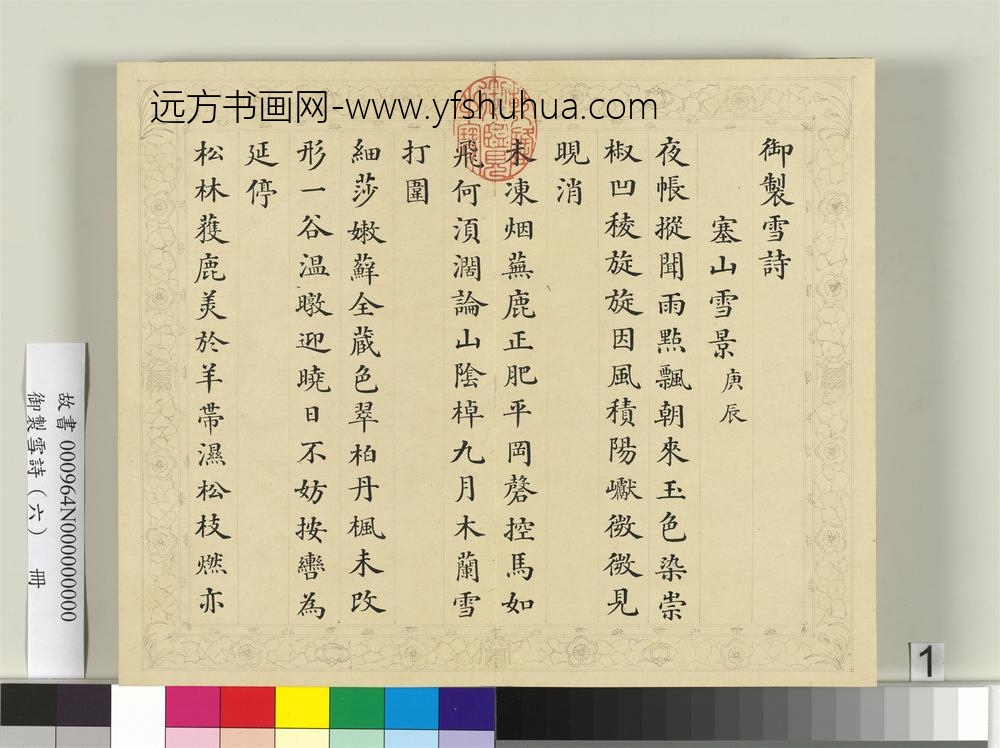 远方书画网-www.yfshuhua.com
御製雪詩
塞山雪景庚辰
夜帳摐聞雨點飄朝來玉色染崇
椒凹稜旋旋因風積陽巘微微見
晛消
未凍烟蕪鹿正肥平岡磬控馬如
飛何須濶論山陰棹九月木蘭雪
打圍
細莎嫩蘚全蔵色翠柏丹楓未改
形一谷温暾迎曉日不妨按轡為
延停
松林蒦鹿美於羊帶濕松枝燃亦
故書 000964N000000000
御製雪詩(六) 冊
1